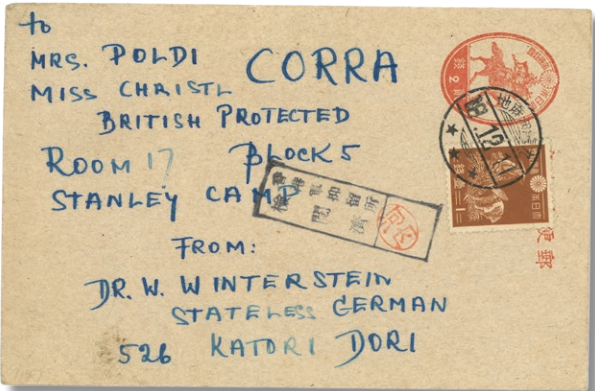 to
MRS. POLDI CORRA
MISS CHRISTL
BRITISH PROTECTED
ROOM 17 BLOCK 5
STANLEY CAMP
FROM:
DR. W. WINTERSTEIN
STATELESS GERMAN
526 KATORI DORI
便郵